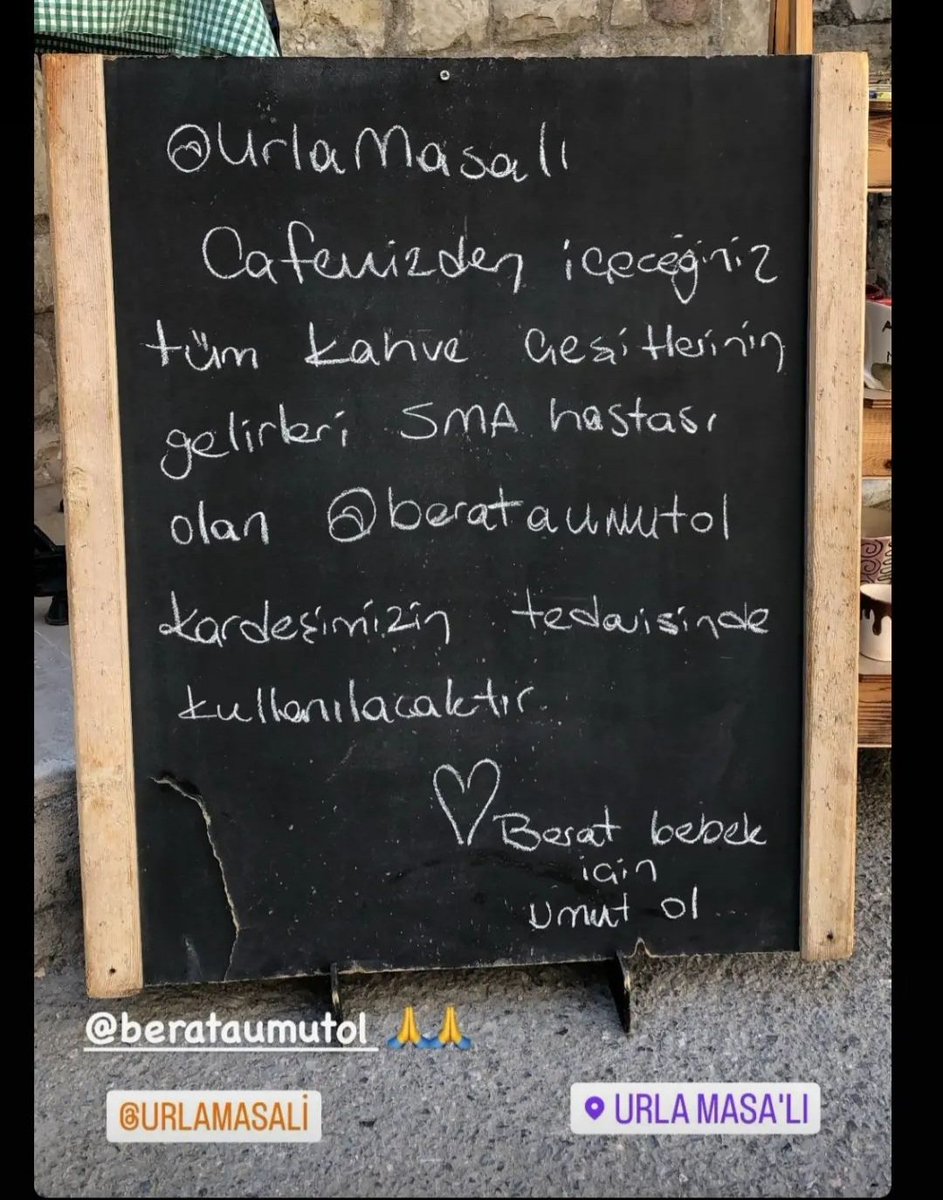 @UrlaMasalı
Cafemizden içeceğiniz
tüm kahve çeşitlerinin
gelirleri SMA hastası
olan @berataumutol
kardeşimizin tedavisinde
kullanılacaktır.
Berat bebek
için
umut ol
@berataumutol 🙏🙏
@URLAMASALİ
URLA MASA'LI